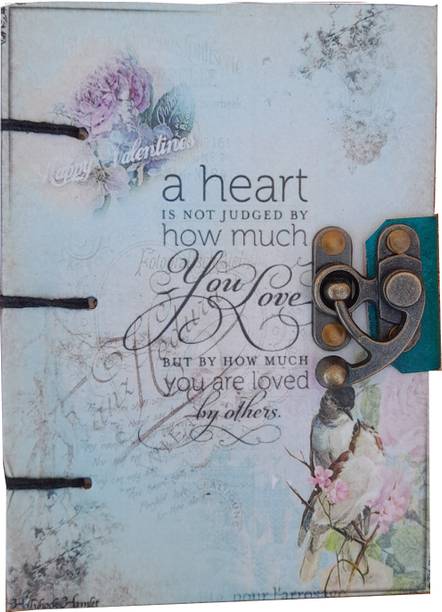 Happy Valentines
a heart
IS NOT JUDGED BY
how much
You Love
BUT BY HOW MUCH
you are loved
by others.
pour l'arrosage